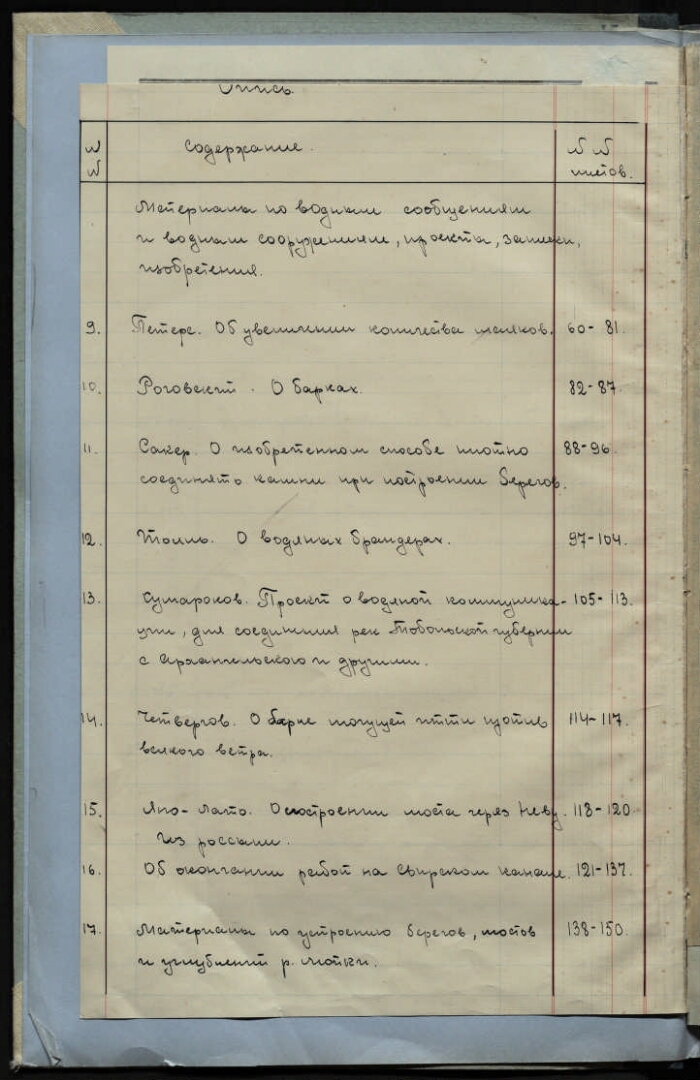 Опись
№№ Содержание. №№ листов.
Материалы по водным сообщениям
и водным сооружениям, проекты, записки,
изобретения.
9. Петерс. Об увеличении количества шлюзов. 60-81.
10. Роговский. О барках. 82-87
11. Сакер. О изобретенном способе плотно 88-96
соединять камни при построении берегов.
12. Толль. О водяных брандерах. 97-104.
13. Сумароков. Проект о водяной коммуника- 105-113
ции, для соединения рек Тобольской губернии
с Архангельского и другими.
14. Четвергов. О барке могущей итти против 114-117.
всякого ветра.
15. Яно-Лато. О построении моста через Неву. 118-120
из россыпи.
16. Об окончании работ на Свирском канале. 121-137.
17. Материалы по устроению берегов, мостов 138-150.
и углублений р. Мойки.